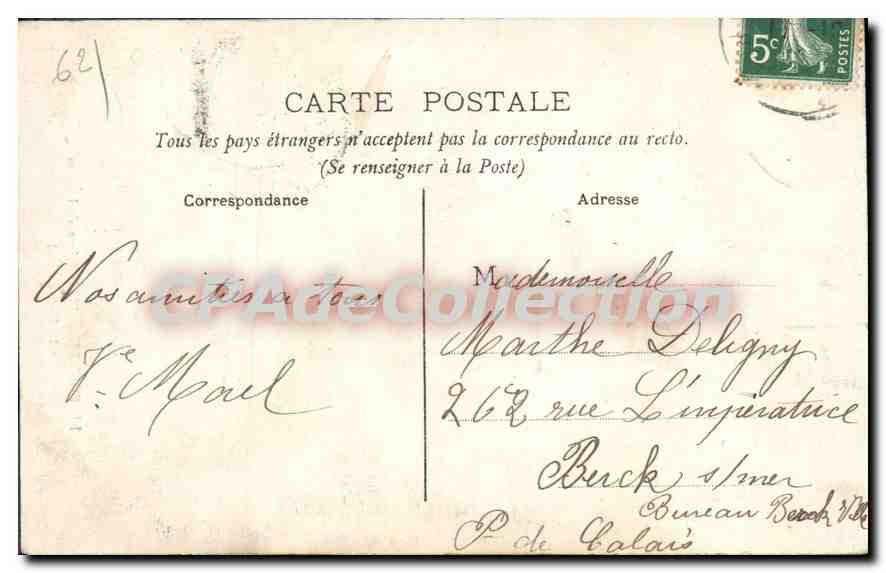 62
5c
POSTES
CARTE POSTALE
Tous les pays étrangers n'acceptent pas la correspondance au recto.
(Se renseigner à la Poste)
Correspondance
Nos amitiés a tous
Ve Mael
Adresse
Mademoiselle
Marthe Deligny
262 rue L'impératrice
Berck s/mer
Bureau Berck Ville
P. de Calais
CPAdeCollection